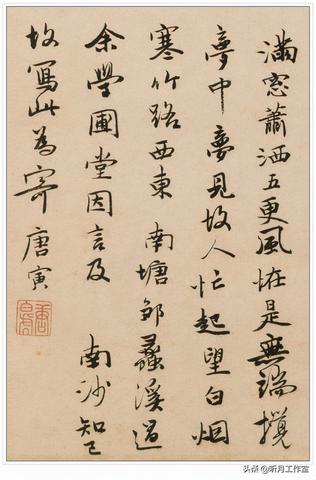 滿窓蕭洒五更風恠是無端攪
夢中夢見故人忙起望白烟
寒竹路西東 南塘邹蠡溪過
余學圃堂因言及 南沙知己
故寫此為寄唐寅
头条 @昕月工作室